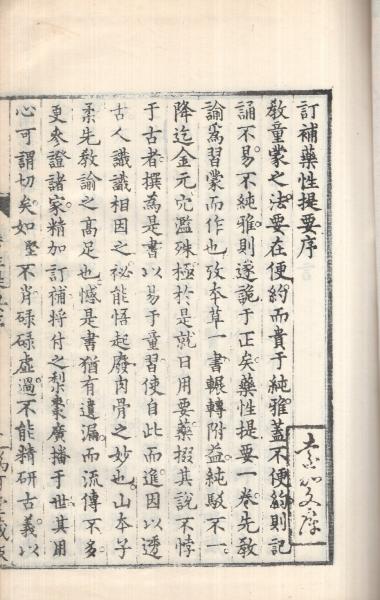 訂補藥性提要序
教童蒙之法要在便約而貴于純雅蓋不便約則記
誦不易不純雅則遂詭于正矣藥性提要一卷先教
諭爲習蒙而作也攷本草一書輾轉附益純駁不一
降迄金元冗濫殊極於是就日用要藥掇其說不悖
于古者撰爲是書以易于童習使自此而進因以透
古人識識相因之秘能悟起廢肉骨之妙也山本子
柔先教諭之高足也憾是書猶有遺漏而流傳不多
更參證諸家精加訂補將付之梨棗廣播于世其用
心可謂切矣如堅不肖碌碌虛過不能精研古義以